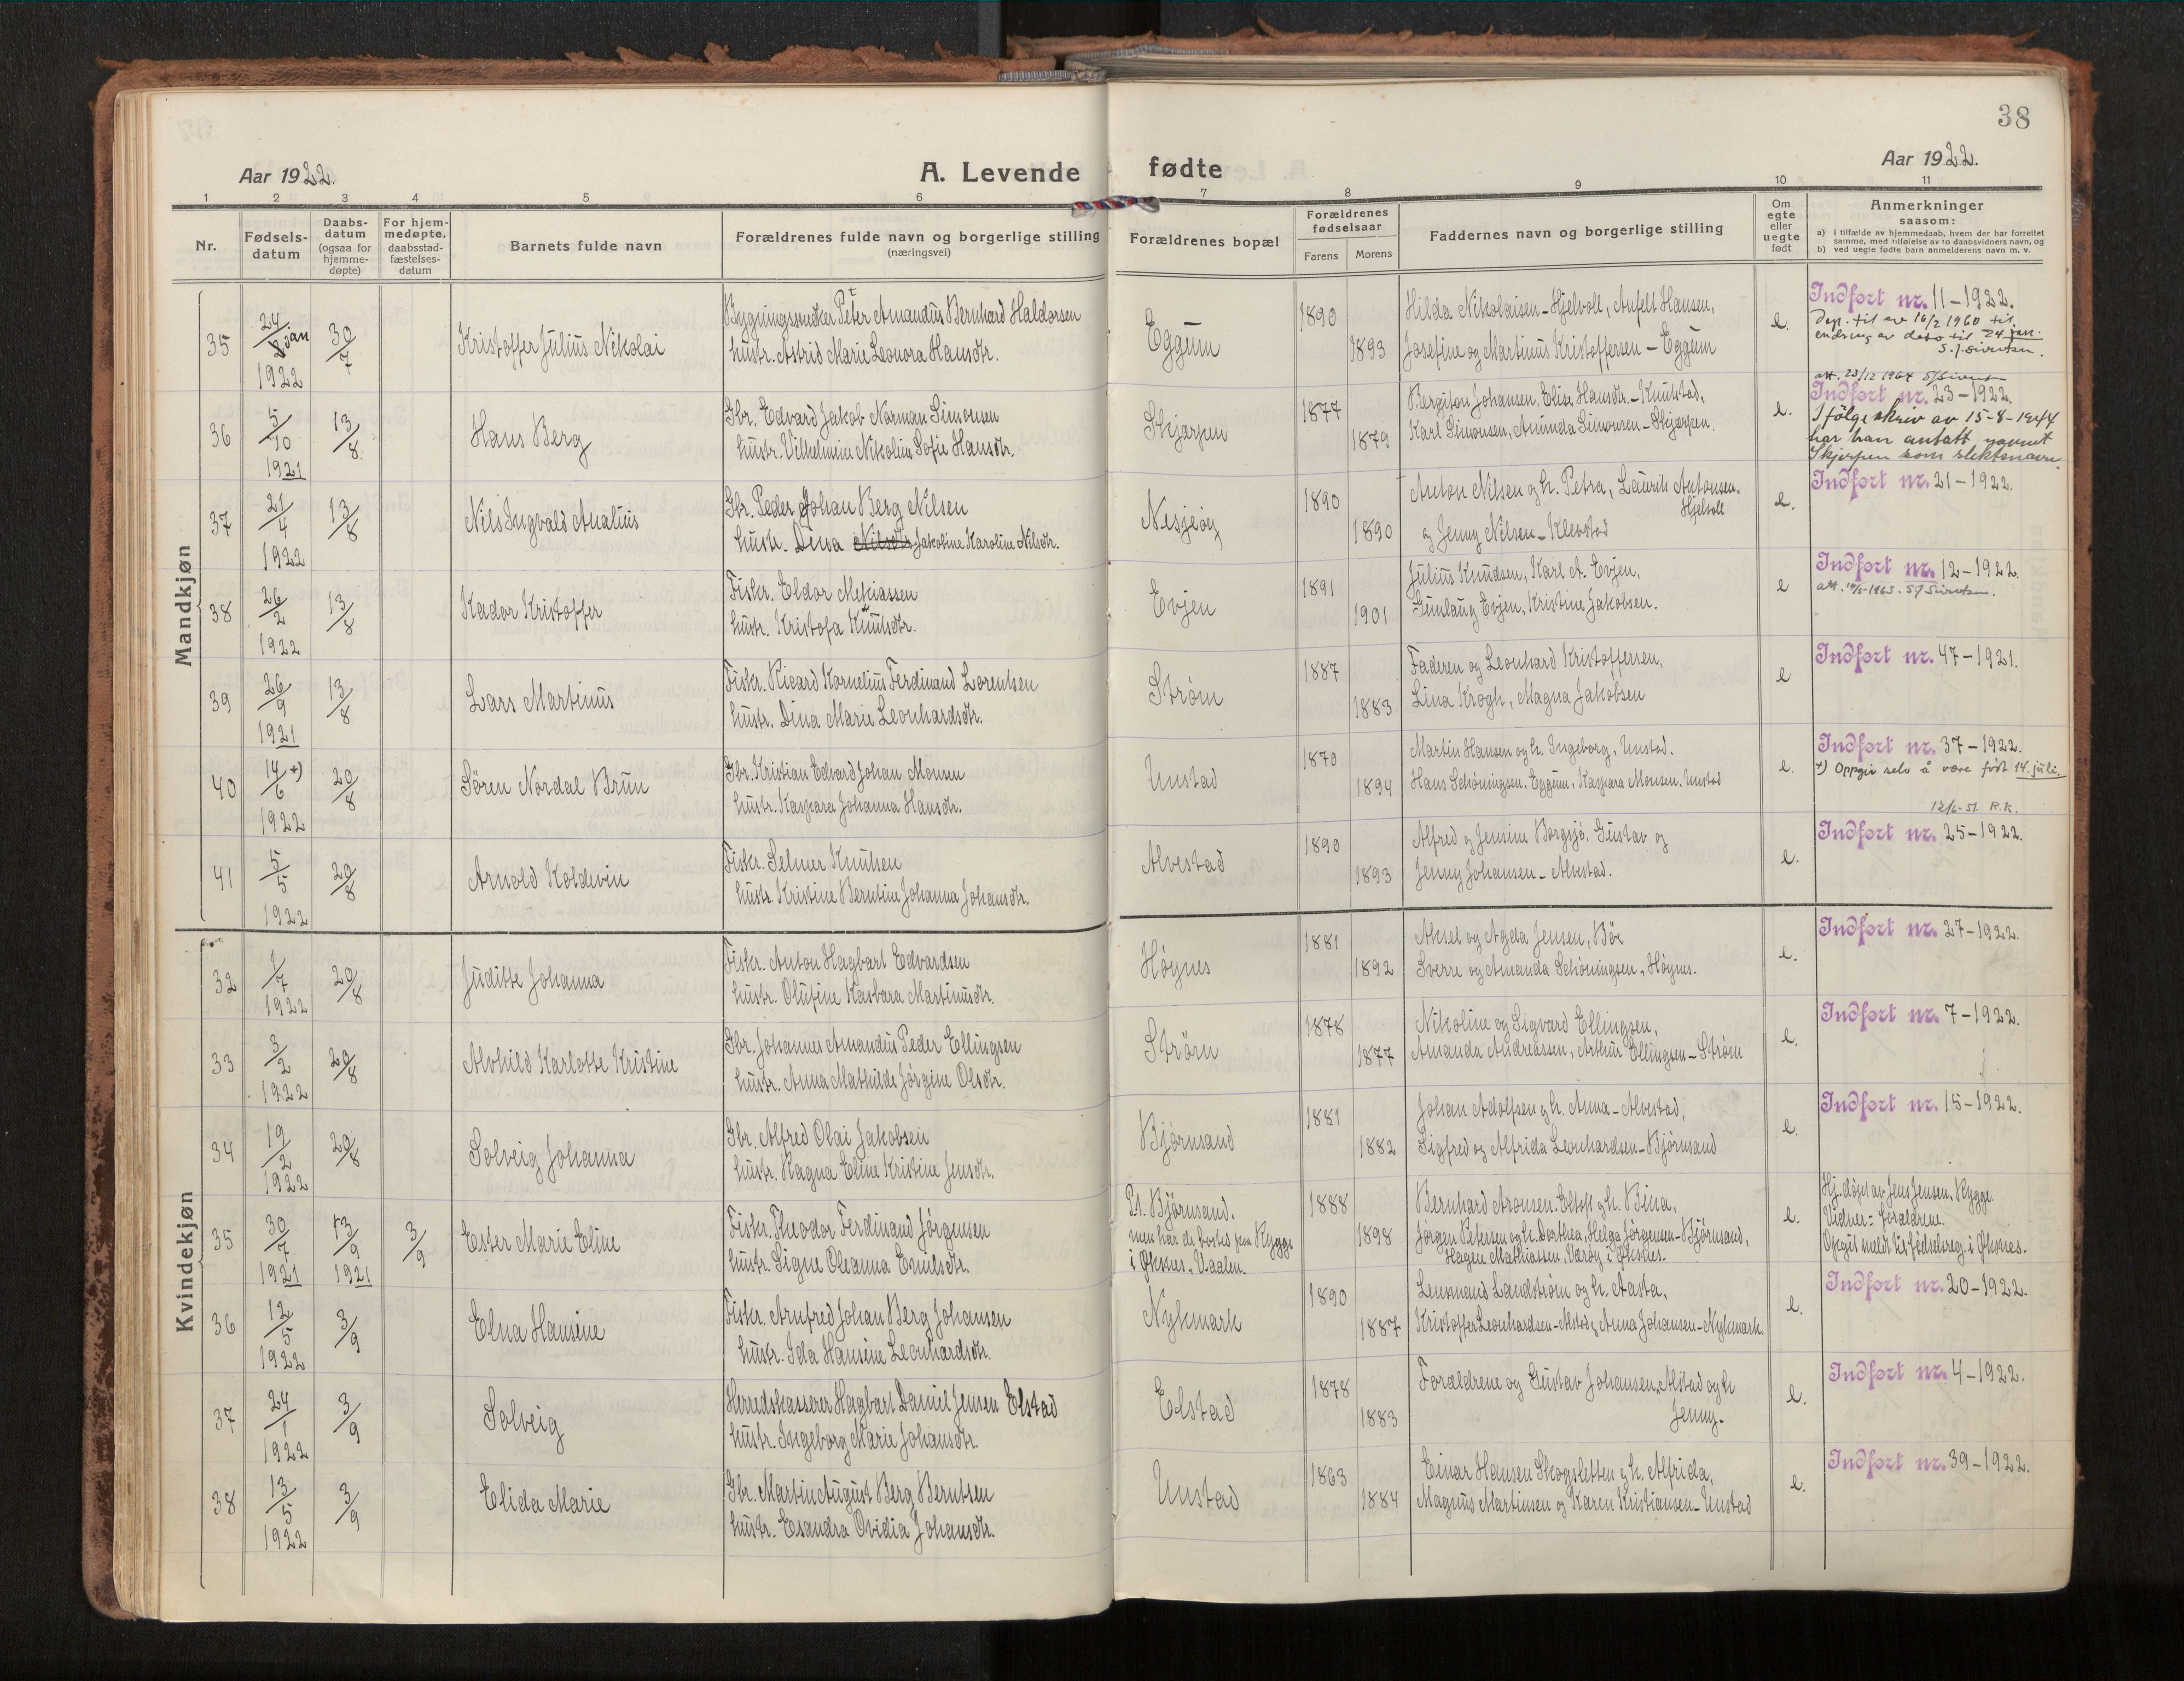 38
Aar 1922.
A. Levende fødte
Aar 1922.
1 2 3 4 5 6 7 8 9 10 11
Nr.
Fødsels-
datum
Daabs-
datum
(ogsaa for
hjemme-
døpte)
For hjem-
medøpte,
daabsstad-
fæstelses-
datum
Barnets fulde navn
Forældrenes fulde navn og borgerlige stilling
(næringsvei)
Forældrenes bopæl
Forældrenes
fødselsaar
Farens Morens
Faddernes navn og borgerlige stilling
Om
egte
eller
uegte
født
Anmerkninger
saasom:
a) i tilfælde av hjemmedaab, hvem der har forrettet
samme, med tilføielse av to daabsvidners navn, og
b) ved uegte fødte barn anmelderens navn m. v.
Mandkjøn
35 24/jan 1922 30/7 Kristoffer Julius Nikolai
Bygningssnedker Peter Amandus Bernhard Haldorsen
hustr. Astrid Marie Leonora Hansdtr.
Eggum 1890 1893
Hilda Nikolaisen - Hjelvoll, Anfelt Hansen,
Josefine og Martinus Kristoffersen - Eggum
e.
Indført nr. 11-1922.
Dep. til av 16/2 1960 til
endring av dato til 24 jan.
S. J. Sivertsen.
att. 23/12 1964
36 5/10 1921 13/8 Hans Berg
Gbr. Edvard Jakob Norman Simonsen
hustr. Vilhelmine Nikoline Sofie Hansdtr.
Skjerpen 1877 1879
Bergiton Johansen, Elise Hansdtr. - Knutstad,
Karl Simonsen, Aminda Simonsen - Skjerpen.
e.
Indført nr. 23-1922.
Ifølge skriv av 15-8-1944
har han antatt navnet
Skjerpen som slektsnavn.
37 21/4 1922 13/8 Nils Ingvald Analius
Gbr. Peder Johan Berg Nilsen
hustr. Dina Nilsdtr Jakoline Karoline Nilsdtr.
Nesjeøy 1890 1890
Anton Nilsen og h. Petra, Laurits Antonsen.
Hjelvoll
og Jenny Nilsen - Klevstad
e.
Indført nr. 21-1922.
38 26/2 1922 13/8 Kador Kristoffer
Fisker. Eldor Mekiassen
hustr. Kristofa Knutsdtr.
Evjen 1891 1901
Julius Knudsen, Karl A. Evjen,
Gunlaug Evjen, Kristine Jakobsen.
e
Indført nr. 12-1922.
39 26/9 1921 13/8 Lars Martinus
Fiskr. Ricard Kornelius Ferdinand Lorentsen
hustr. Dina Marie Leonhardsdtr.
Strøm 1887 1883
Faderen og Leonhard Kristoffersen,
Lina Krogh, Magna Jakobsen
e
Indført nr. 47-1921.
40 14/6 +) 1922 20/8 Søren Nordal Brun
Gbr. Kristian Edvard Johan Monsen
hustr. Kaspara Johanna Hansdtr.
Unstad 1870 1894
Martin Hansen og h. Ingeborg, Unstad.
Hans Schøningsen. Eggum, Kaspara Monsen. Unstad
e.
Indført nr. 37-1922.
+) Oppgir selv å være født 14. juli.
12/6-51. R.K.
41 5/5 1922 20/8 Arnold Koldevin
Fiskr. Selmer Knutsen
hustr. Kristine Berntine Johanna Johansdtr.
Alvestad 1890 1893
Alfred og Jemine Borgsjø, Gustav og
Jenny Johansen - Alvestad.
e.
Indført nr. 25-1922.
Kvindekjøn
32 1/7 1922 20/8 Juditte Johanna
Fiskr. Anton Hagbart Edvardsen
hustr. Olufine Kasbara Martinusdtr.
Høynes 1881 1892
Aksel og Agda Jensen, Bøe
Sverre og Amanda Schøningsen, Høynes.
e.
Indført nr. 27-1922.
33 3/2 1922 20/8 Alvhild Karlotte Kristine
Gbr. Johannes Amandus Peder Ellingsen
hustr. Anna Mathilde Jørgine Olsdtr.
Strøm 1878 1877
Nikoline og Sigvard Ellingsen,
Amanda Andreassen, Arthur Ellingsen - Strøm
e.
Indført nr. 7-1922.
34 19/2 1922 20/8 Solveig Johanna
Gbr. Alfred Olai Jakobsen
hustr. Ragna Eline Kristine Jensdtr.
Bjørnsand 1881 1882
Johan Adolfsen og h. Anna - Alvestad,
Sigfred og Alfrida Leonhardsen - Bjørnsand
e.
Indført nr. 15-1922.
35 30/7 1921 13/9 1921 3/9 Ester Marie Eline
Fiskr. Theodor Ferdinand Jørgensen
hustr. Signe Oleanna Emilsdtr.
Pt. Bjørnsand.
men har de bodd paa Rygge
i Øksnes. V.aalen.
1888 1898
Bernhard Aronsen. Eltoft og h. Bina,
Jørgen Petersen og h. Dorthea, Helga Jørgensen - Bjørnsand,
Hagen Mathiassen, Værøy i Øksnes.
e.
Hj.døpt av Jens Jensen, Rygge.
Vidner: forældrene.
Opgit meldt til fødselsreg. i Øksnes.
36 12/5 1922 3/9 Elna Hansine
Fiskr. Arnfred Johan Berg Johansen
hustr. Ida Hansine Leonhardsdtr.
Nykmark 1890 1887
Lensmand Landstrøm og h. Aasta,
Kristoffer Leonhardsen - Alstad og Anna Johansen - Nykmark.
e.
Indført nr. 20-1922.
37 24/1 1922 3/9 Solveig
Herredskasserer Hagbart Daniel Jensen Elstad
hustr. Ingeborg Marie Johansdtr.
Elstad 1878 1883
Forældrene og Gustav Johansen, Alstad og h
Jenny.
e.
Indført nr. 4-1922.
38 13/5 1922 3/9 Elida Marie
Gbr. Martin August Berg Berntsen
hustr. Esandra Ovidia Johansdtr.
Unstad 1863 1884
Einar Hansen Skogsletten og h. Alfrida,
Magnus Martinsen og Karen Kristiansen - Unstad
e.
Indført nr. 39-1922.